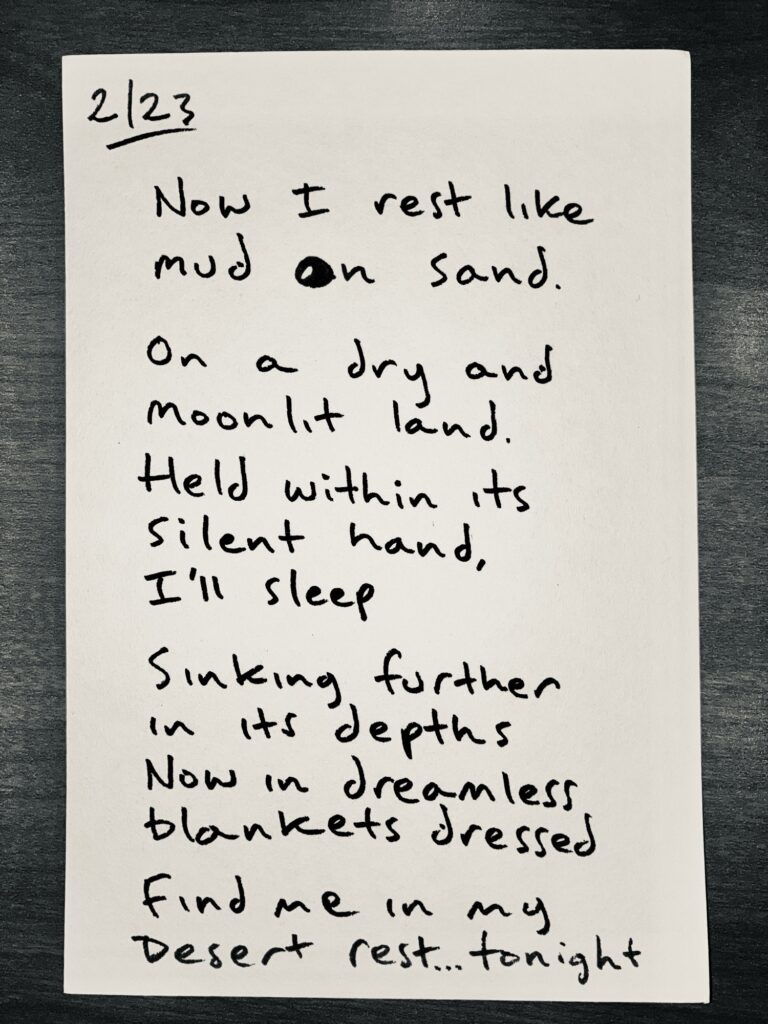 2/23
Now I rest like
mud on sand.
On a dry and
moonlit land.
Held within its
silent hand,
I'll sleep
Sinking further
in its depths
Now in dreamless
blankets dressed
Find me in my
Desert rest...tonight